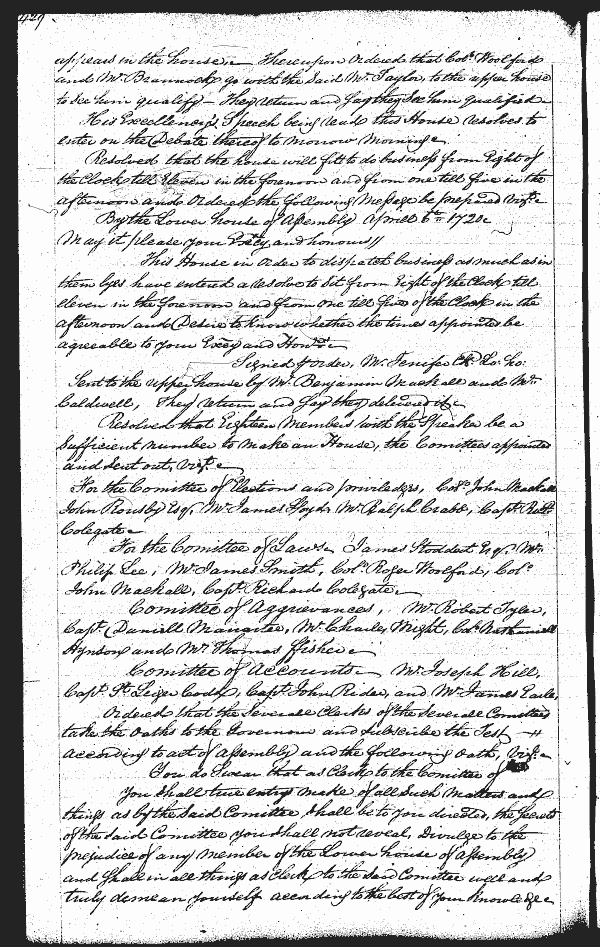 429
appears in the house. Thereupon Ordered that Colo. Woolford
and Mr. Brannock go with the Said Mr. Taylor to the upper house
to See him qualify They return and Say they See him qualified
His Excellency's Speech being read this House resolves to
enter on the Debate thereof to morrow Morning
Resolved that the house will Sitt to do business from Eight of
the Clock till Eleven in the forenoon and from one till five in the
afternoon and Ordered the following Message be prepared Vizt.
By the Lower house of Assembly Aprill 6th 1720
May it please your Excty. and honours//
This House in order to dispatch business as much as in
them lyes have entered a resolve to Sit from Eight of the Clock till
Eleven in the forenoon and from one till five of the Clock in the
afternoon and Desire to know whether the times appointed be
agreeable to your Excy and Honrs.
Signed p order, M. Jenifer Ck. Lo. ho:
Sent to the upper house by Mr. Benjamin Mackall and Mr.
Caldwell, They return and Say they delivered it
Resolved that Eighteen Members with the Speaker be a
Sufficient number to make an House, the Comittees appointed
and Sent out, Vizt.
For the Comittee of Elections and priviledges, Colo. John Mackall
John Rousby Esqr. Mr. James Lloyd, Mr. Ralph Crabb, Capt. Richd.
Colegate
For the Comittee of Laws James Stoddert Esqr. Mr.
Philip Lee, Mr. James Smith, Colo. Roger Woolford, Colo.
John Mackall, Capt. Richard Colegate
Comittee of Aggrievances, Mr. Robert Tyler,
Capt. Daniell Mariartee, Mr. Charles Wright, Colo. Nathaniell
Hynson and Mr. Thomas ffisher
Comittee of Accounts Mr. Joseph Hill,
Capt. St. Leger Codd, Capt. John Rider, and Mr. James Earle,
Ordered that the Severall Clerks of the Severall Comittees
take the Oaths to the Governour and Subscribe the Test
according to act of Assembly and the following Oath, Vizt.
You do Swear that as Clerk to the Comittee of
You Shall true entry make of all Such Matters and
things as by the Said Comittee Shall be to you directed, the Secrets
of the Said Comittee you shall not reveal, Divulge to the
prejudice of any member of the Lower house of Assembly
and Shall in all things as Clerk to the Said Comittee well and
truly demean yourself according to the best of your Knowledge